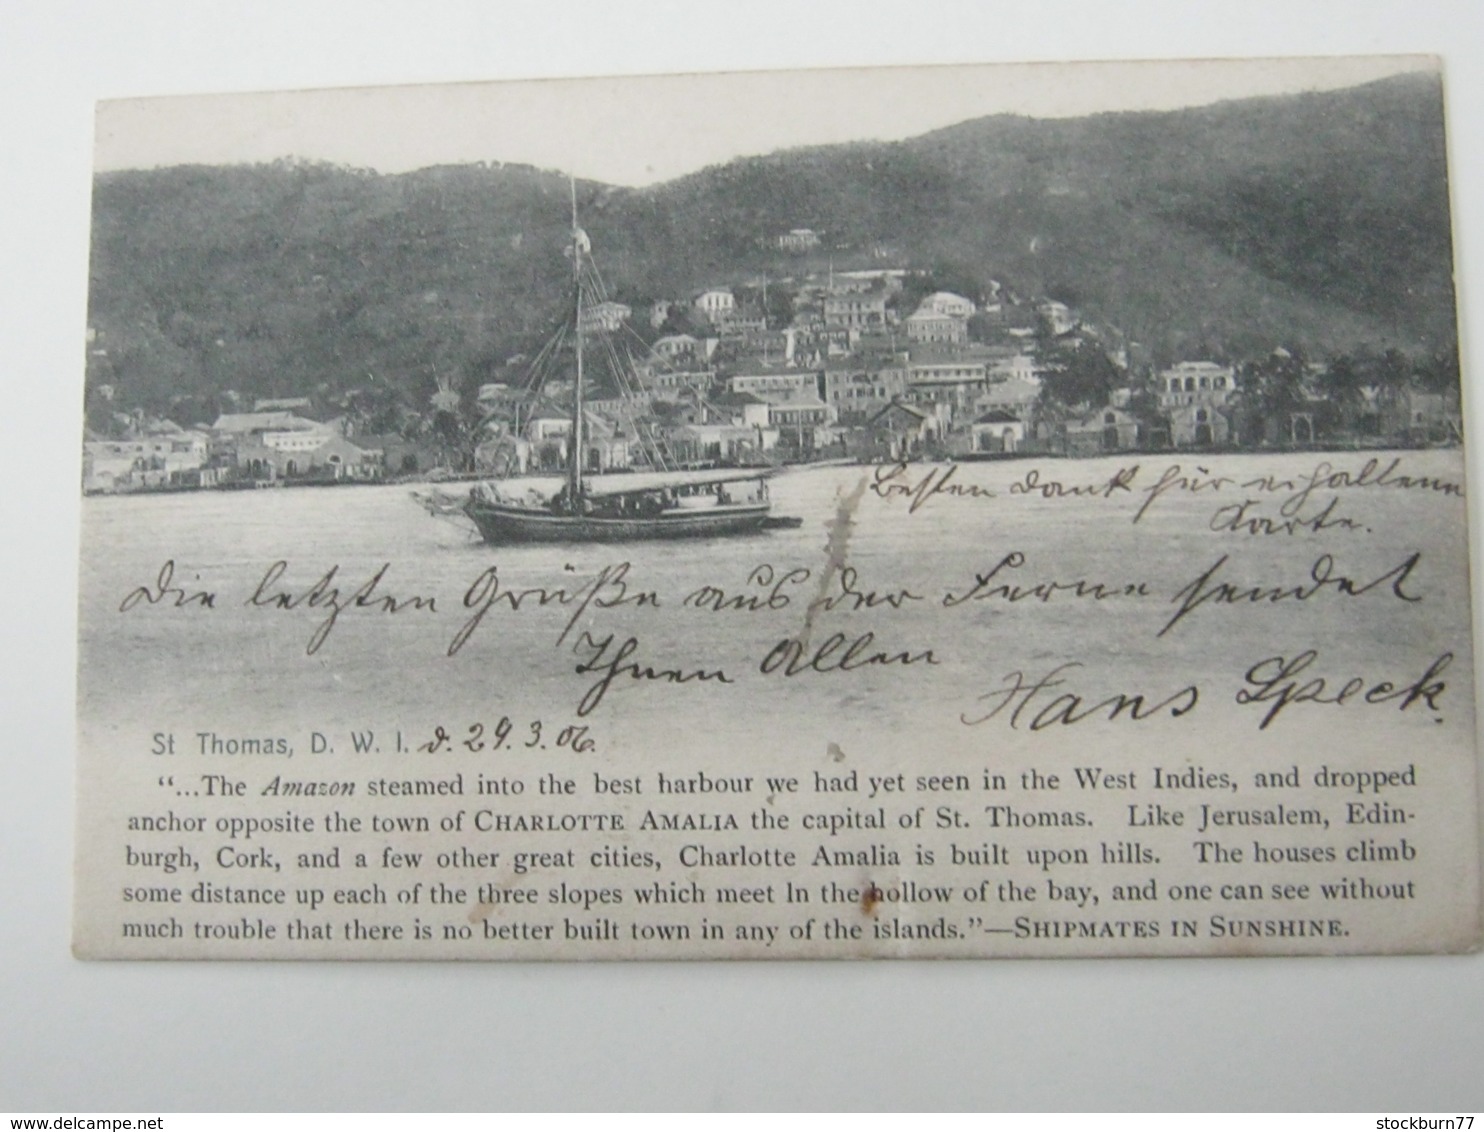 Besten Dank für erhaltene
Karte.
Die letzten Grüße aus der Ferne sendet
Ihnen Allen
Hans Speck.
St Thomas, D. W. I. d. 29. 3. 06.
“...The Amazon steamed into the best harbour we had yet seen in the West Indies, and dropped
anchor opposite the town of CHARLOTTE AMALIA the capital of St. Thomas. Like Jerusalem, Edin-
burgh, Cork, and a few other great cities, Charlotte Amalia is built upon hills. The houses climb
some distance up each of the three slopes which meet In the hollow of the bay, and one can see without
much trouble that there is no better built town in any of the islands.”—SHIPMATES IN SUNSHINE.
delcampe.net
stockburn77